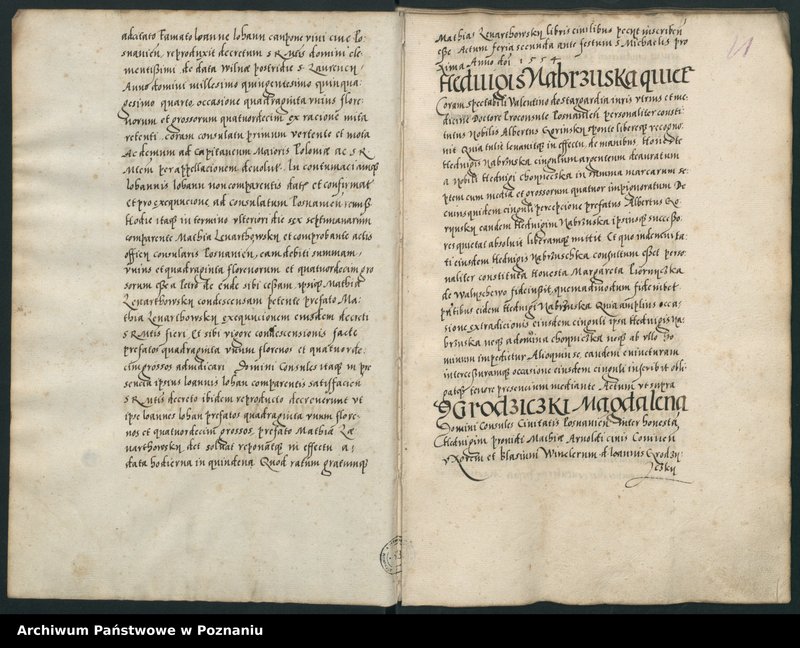 adcitato famato Ioanne Iohann caupone vini cive Po-
snanien̄ reproduxit decretum S R Mtis domini cle-
mentissimi de data Wilnæ postridie S Laurencij
Anno domini millesimo quingentesimo quinqua-
gesimo quarto occasione quadraginta vnius flore-
norum et grossorum quatuordecim ex racione
retenti coram consulatu primum vertente et mota
Ac demum ad Capitaneum Maioris Poloniæ ac S R
Mtem per appellacionem devolut. In contumaciamq
Iohannis Iohann non comparentis dat et confirmat
et pro exequcione ad Consulatum Posnanien̄ remiss
Hodie itaq in termino vlteriori die sex septimanarum
comparente Mathia Levarthowsky et comprobante actis
officij consularis Posnanien̄, eam debiti summam
vnius et quadraginta florenorum et quatuordecim gro
ssorum esse a de ende sibi cessam, ipsiq Mathiæ
Levarthowsky condescensam petente prefato Ma-
thia Levarthowsky exequcionem eiusdem decreti
S R Mtis fieri Et sibi vigore condescensionis factæ
prefatos quadraginta vnum florenos et quatuorde-
cim grossos adiudicari Domini Consules itaq in pre
sencia ipsius Ioannis Iohan comparentis satisfacien̄
S R Mtis decreto ibidem reproducto decreverunt vt
ipse Ioannes Iohan prefatos quadraginta vnum flore-
nos et quatuordecim grossos, prefato Mathiæ Le
varthowsky det solvat reponatq in effectu a
data hodierna in quindena Quod ratum gratumq
11
Mathias Levarthowsky libris civilibus petijt inscriben̄
esse Actum feria secunda ante festum S Michaelis pro
xima Anno dni 1554
Heduigis Nabrzuska quiet
Coram spectabili Valentino de Stargardia iuris vtriusque et me-
dicinæ Doctore Proconsule Posnanien̄ personaliter consti-
tutus Nobilis Albertus Gorinsky sponte libereq recogno-
vit Quia tulit levavitq in effectu de manibus Honestæ
Heduigis Nabrzuska cingulum argenteum deauratum
a Nobili Heduigi Choynieczska in summa marcarum se-
ptem cum media et grossorum quatuor impignoratum De
cuiusquidem cinguli percepcione prefatus Albertus Go-
rynsky eandem Heduigim Nabrzuska ipsiusq successo-
res quietat absolvit liberamq mittit Et quo indemnita-
ti eiusdem Heduigis Nabrzuschka consultum esset perso-
naliter constituta Honesta Margareta
de fideiussit, quemadmodum fideiubet
pntibus eidem Heduigi Nabrzuska Quia amplius occa-
sione extradicionis eiusdem cinguli ipsa Heduigis Na-
brzuska neq a domina Choyniczka neq ab vllo Ho
minum impedietur Alioquin se, eandem evincturam
intercessuramq occasione eiusdem cinguli inscribit obli-
gatq tenore presencium mediante Actum vt supra
Grodziczki Magdalena
Domini Consules Civitatis Posnanien̄ Inter honestā
Heduigim providi Mathiæ Arnoldi civis Conivien̄
vxorem et Blasium Winclerum d Ioannis Grodzy-
czky